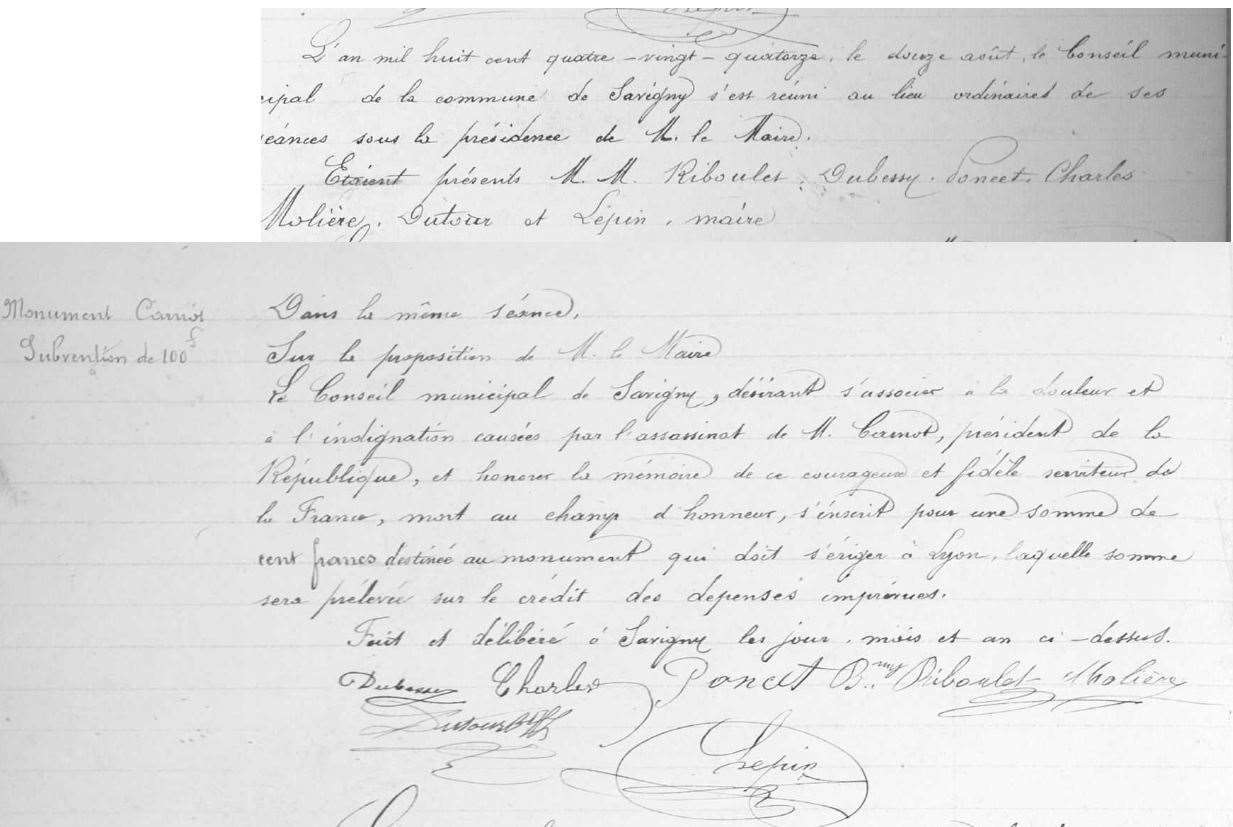 L'an mil huit cent quatre-vingt-quatorze, le douze août, le Conseil muni-
cipal de la commune de Savigny s'est réuni au lieu ordinaires de ses
séances sous la présidence de M. le Maire.
Etaient présents M. M. Riboulet, Dubessy, Poncet, Charles
Molière, Dutour et Lépin, maire
Monument Carnot
Subvention de 100f
Dans la même séance,
Sur la proposition de M. le Maire
Le Conseil municipal de Savigny, désirant s'associer à la douleur et
à l'indignation causées par l'assassinat de M. Carnot, président de la
République, et honorer la mémoire de ce courageux et fidèle serviteur de
la France, mort au champ d'honneur, s'inscrit pour une somme de
cent francs destinée au monument qui doit s'ériger à Lyon, laquelle somme
sera prélevée sur le crédit des dépenses imprévues.
Fait et délibéré à Savigny les jour, mois et an ci-dessus.
Dubessy Charles Poncet Bmy Riboulet Molière
Dutour
Lepin